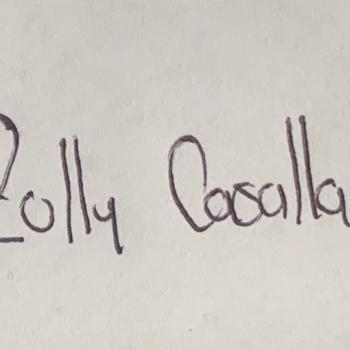 Zolly Casalla